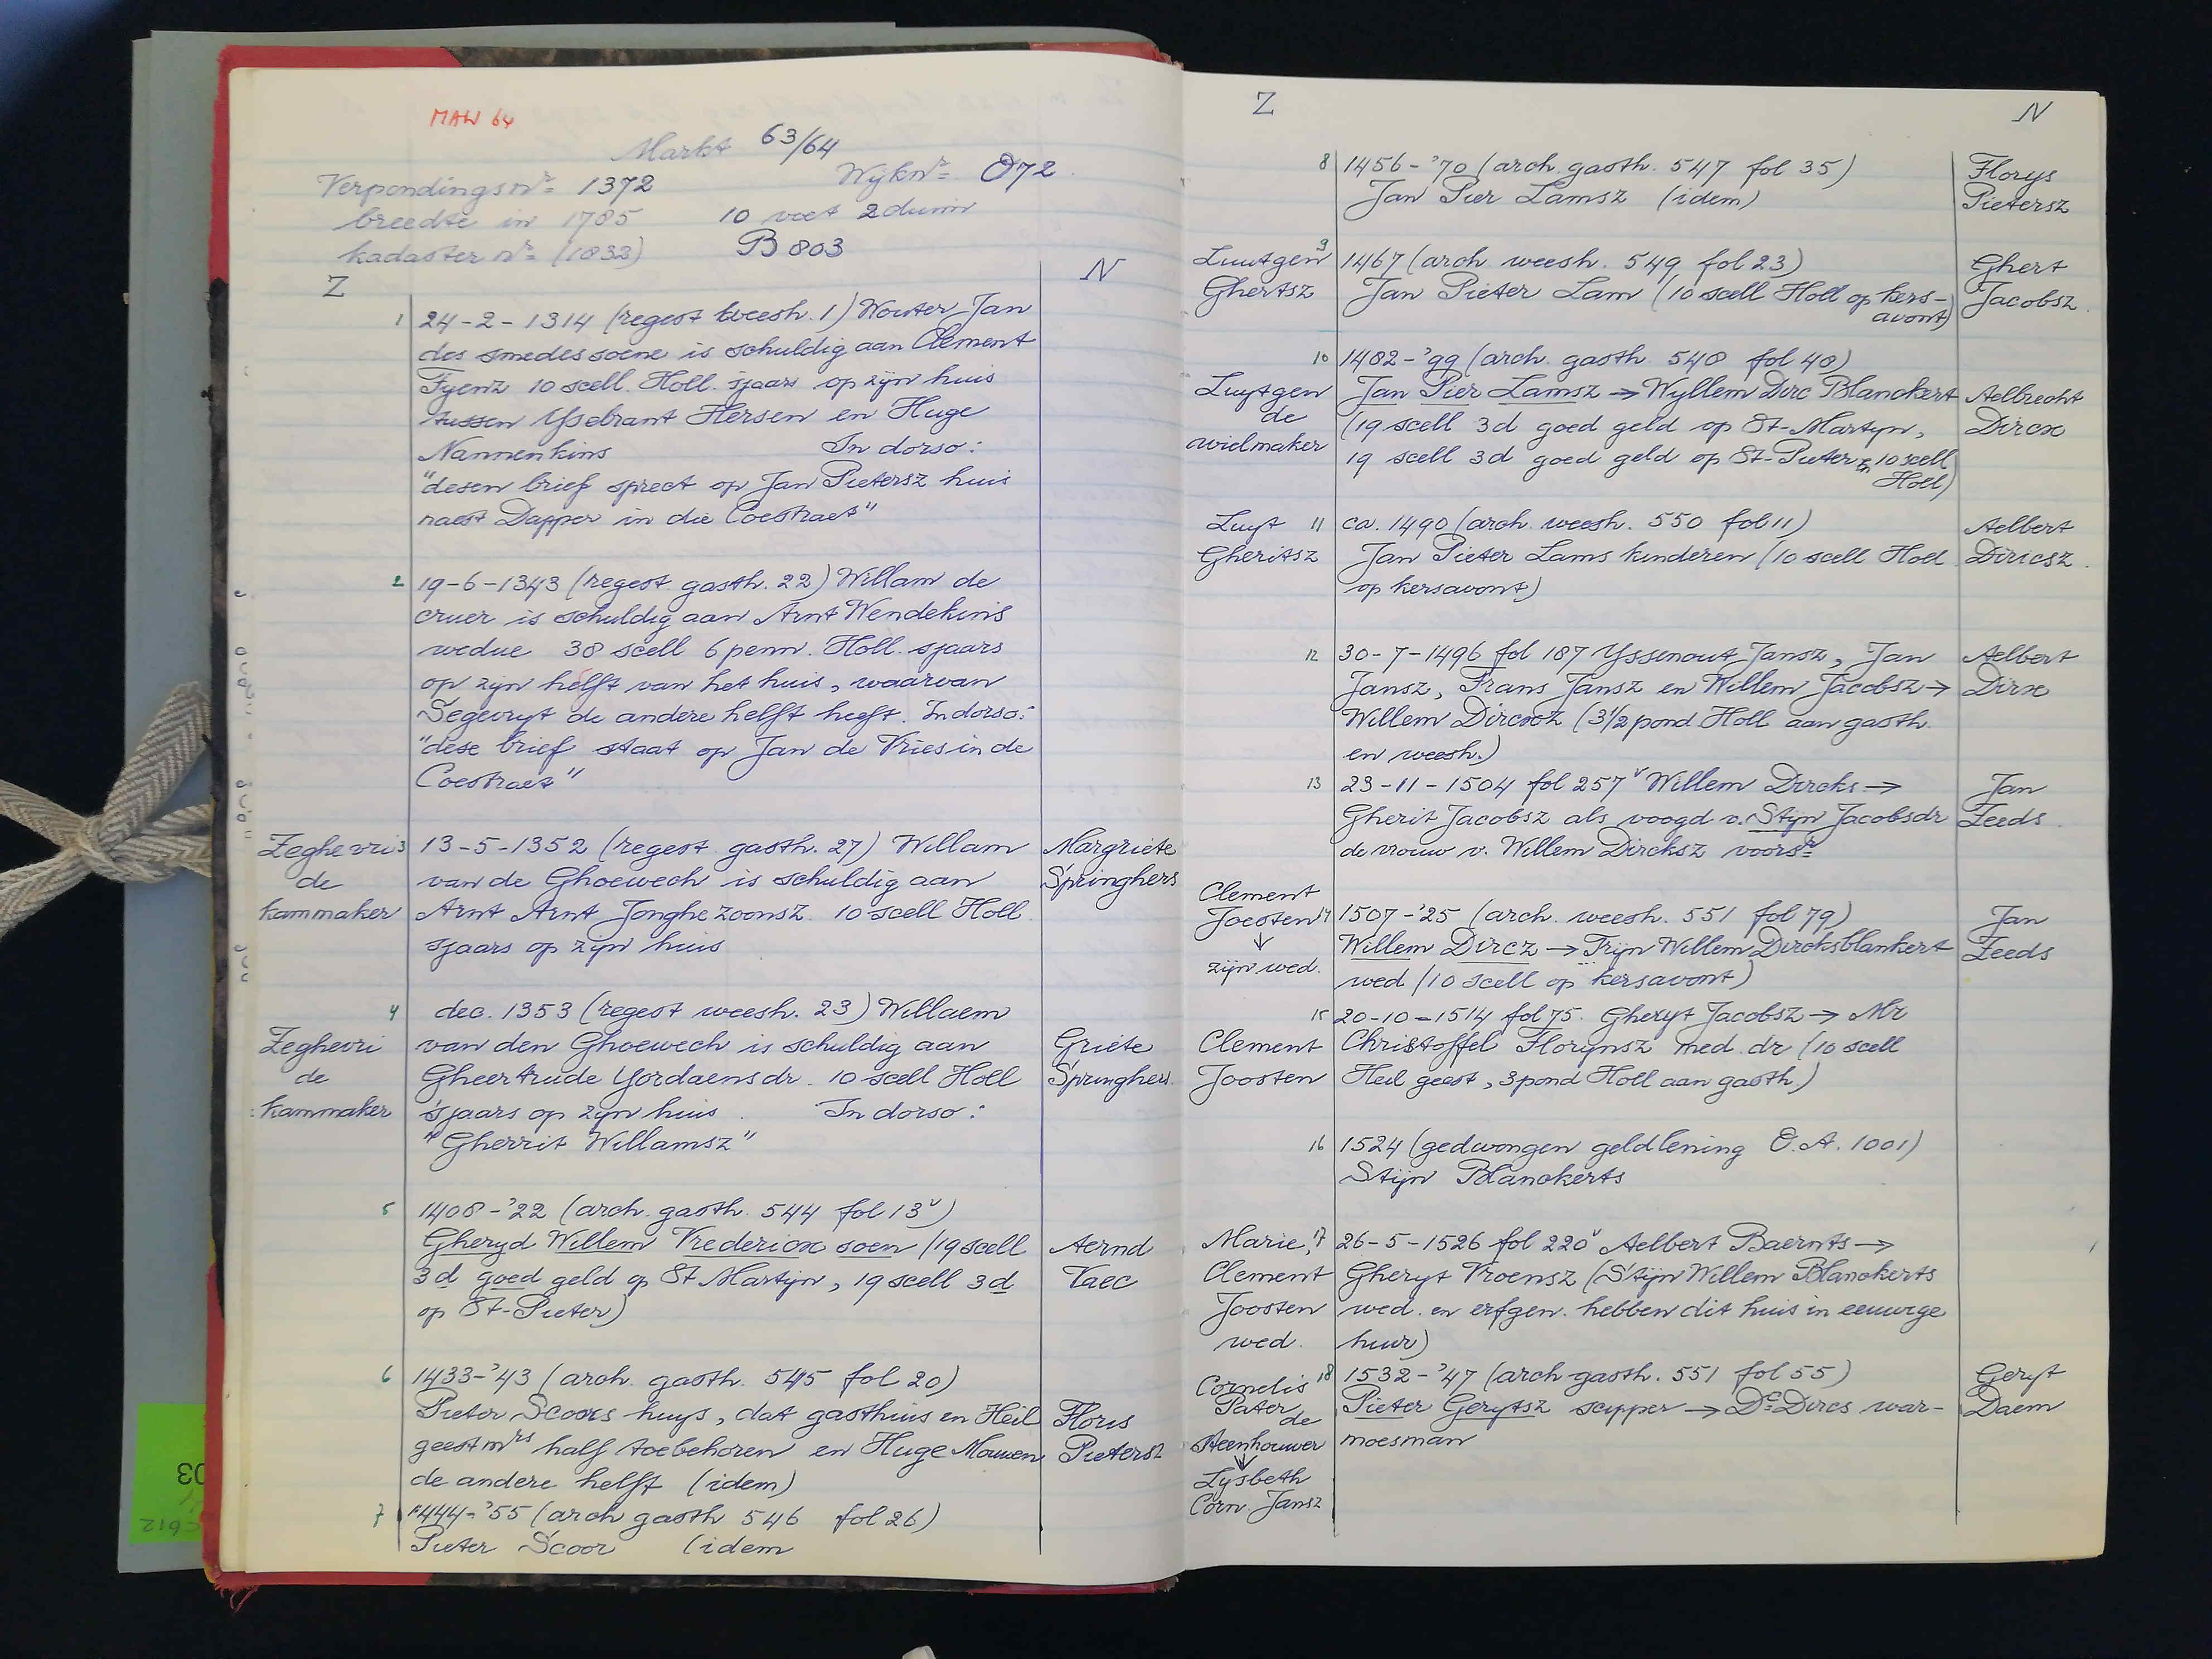 MAW 64
Markt 63/64
Verpondings nr 1372 Wijknr O72
breedte in 1785 10 voet 2 duim
kadaster nr (1832) B 803
Z N
1 24-2-1314 (regest weesh. 1) Wouter Jan
des smedessoene is schuldig aan Clement
Tyenz 10 scell. Holl. sjaars op zijn huis
tussen Ysebrant Hersen en Huge
Nannenkins In dorso:
"desen brief sprect op Jan Pietersz huis
naest Dapper in die Coestraet"
2 19-6-1343 (regest gasth. 22) Willam de
cruer is schuldig aan Arnt Wendekins
wedue 38 scell 6 penn. Holl. sjaars
op zijn helft van het huis, waarvan
Segevryt de andere helft heeft. In dorso:
"dese brief staat op Jan de Vries in de
Coestraet"
Zeghevri
de
kammaker
3 13-5-1352 (regest gasth. 27) Willam
van de Ghoewech is schuldig aan
Arnt Arnt Jonghe zoonsz. 10 scell Holl
sjaars op zijn huis
Margriete
Springhers
4 dec. 1353 (regest weesh. 23) Willaem
van den Ghoewech is schuldig aan
Gheertrude Yordaensdr. 10 scell Holl
sjaars op zijn huis. In dorso:
"Gherrit Willamsz"
Zeghevri
de
kammaker
Griete
Springhers
5 1408-'22 (arch. gasth. 544 fol 13v)
Gheryd Willem Vrederiox soen (19 scell
3d goed geld op St Martijn, 19 scell 3d
op St-Pieter)
Aernd
Vaec
6 1433-'43 (arch. gasth. 545 fol 20)
Pieter Scoors huys, dat gasthuis en Heil
geestmrs half toebehoren en Huge Mouwen
de andere helft (idem)
Floris
Pietersz
7 1444-'55 (arch gasth 546 fol 26)
Pieter Scoor (idem
Z N
8 1456-'70 (arch. gasth. 547 fol 35)
Jan Pier Lamsz (idem)
Florys
Pietersz
Luutgen
Ghertsz
9 1467 (arch. weesh. 549 fol 23)
Jan Pieter Lam (10 scell Holl op kers-
avont)
Ghert
Jacobsz.
Luytgen
de
wielmaker
10 1482-'99 (arch. gasth. 548 fol 48)
Jan Pier Lamsz → Wyllem Dirc Blanckert
(19 scell 3d goed geld op St-Martyn,
19 scell 3d goed geld op St-Pieter, 10 scell
Holl)
Aelbrecht
Dircx
Luyt
Gheritsz
11 ca. 1490 (arch. weesh. 550 fol 11)
Jan Pieter Lams kinderen (10 scell Holl
op kersavont)
Aelbert
Diricsz.
12 30-7-1496 fol 187 Yssenout Jansz, Jan
Jansz, Frans Jansz en Willem Jacobsz →
Willem Dircxz (3 1/2 pond Holl aan gasth.
en weesh.)
Aelbert
Dirx
13 23-11-1504 fol 257v Willem Dircks →
Gherit Jacobsz als voogd v. Stijn Jacobsdr
de vrouw v. Willem Dircksz voorsr
Jan
Zeeds.
Clement
Joosten
↓
zijn wed.
14 1507-'25 (arch. weesh. 551 fol 79)
Willem Dircz → Trijn Willem Dircksblankert
wed (10 scell op kersavont)
Jan
Zeeds
15 20-10-1514 fol 75. Gheryt Jacobsz → Mr
Christoffel Florijnsz med. dr (10 scell
Heil geest, 3 pond Holl aan gasth.)
Clement
Joosten
16 1524 (gedwongen geldlening O.A. 1001)
Stijn Blanckerts
Marie,
Clement
Joosten
wed.
17 26-5-1526 fol 220v Aelbert Baernts →
Gheryt Vroensz (Stijn Willem Blanckerts
wed. en erfgen. hebben dit huis in eeuwige
huur)
Cornelis
Pater
de
steenhouwer
↓
Lysbeth
Corn. Jansz
18 1532-'47 (arch gasth. 551 fol 55)
Pieter Gerytsz scipper → Dc Dircs war-
moesman
Geryt
Daem